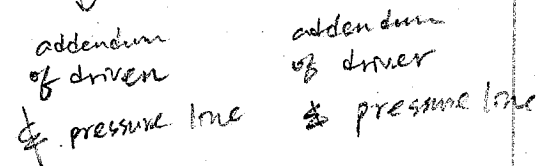 addendum
of driven
& pressure line
addendum
of driver
& pressure line